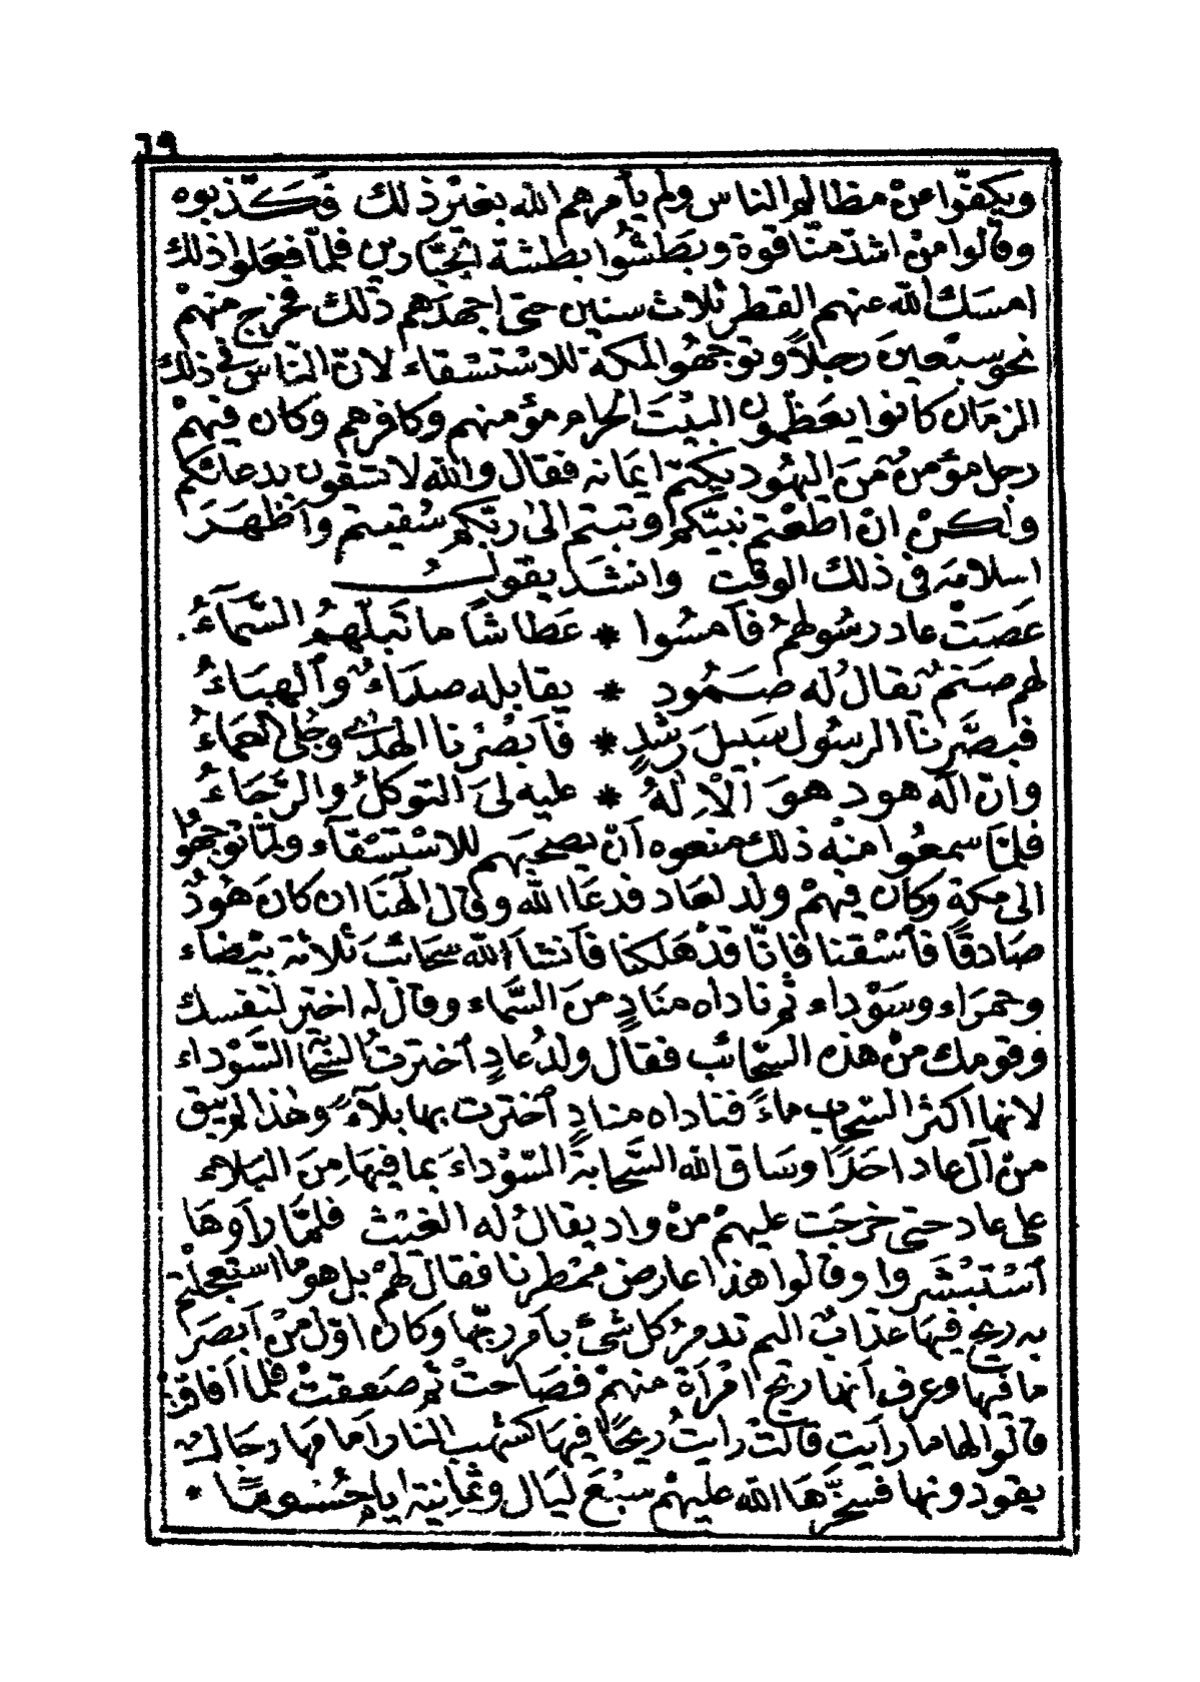 ٦٩
ويكفّوا عنْ مظالم الناس ولم يأمرهم الله بغيْر ذلك فكذّبوه
وقالوا منْ اشدّ منّا قوة وبطشُوا بطشة الجبّارين فلمّا فعَلوا ذلك
امسَك الله عنهم القطر ثلاث سنين حتى اجهدَهم ذلك فخرج منهمْ
نحو سبْعينَ رجلاً وتوجهُوا لمكة للاسْتسْقاء لانّ النّاسَ في ذلك
الزمان كانوا يعَظّمون البيْتَ الحرام مؤمنهم وكافرهم وكان فيهمْ
رجل مؤمنٌ منَ اليهُود يكتم ايمانه فقال والله لا تسْقون بدعائكم
ولكنْ انْ اطعْتم نبيّكم وتبتم الىٰ ربّكم سُقيتم وأظهَرَ
اسلامه في ذلك الوقت وانشد يقول
عَصَتْ عاد رسُولهمُ فأمسُوا * عَطاشًا ما تَبلّهمُ السَّمَآءُ
لهم صَنمٌ يقالُ له صَمُود * يقابله صدَاءٌ وٱلهبَاءُ
فبصَّرنا الرسُول سَبيلَ رشْدٍ * فأبصُرنا الهدىٰ وجُلى العَماءُ
وانّ اله هود هوَ الْاِلٰهُ * عليه لىَ التوكلُ والرَّجَاءُ
فلمّا سمعُوا منْه ذلك منعوه أنّ يصْحبَهم للاسْتسْقآء ولمّا توجهُوا
الى مكة وكان فيهمْ ولد لعاد فدعَا الله وقال الهنَا ان كانَ هُودٌ
صَادقًا فٱسْقنا فانّا قدْ هَلكنا فأنشأ الله سحَائبَ ثلاثة بيْضاء
وحمرَاء وسَوْداء ثم ناداه منَادٍ منَ السَّماء وقال له اختر لنفسك
وقومك منْ هذه السّحائب فقال ولدُ عادٍ ٱخترتُ السّحابة السَّوْداء
لانها اكثرُ السّحاب ماءً فناداه منادٍ ٱخترت بها بلآءً وهٰذا لم يبق
منْ آل عاد احَدًا وسَاق الله السَّحابة السّوْداءَ بما فيهَا مِنَ البَلاء
على عاد حتى خرجَت عليهمْ منْ واد يقالُ له الغيْث فلمّا رأوهَا
ٱسْتبْشروا وقالوا هذا عارض ممْطرنا فقال لهمْ بل هو ما استعجلتم
به ريح فيهَا عذابٌ اليم تدمرُ كل شىءٍ بأمر ربّها وكان اوّل منْ أبصَرَ
ما فيها وعرف أنها ريح امْرأة منهمْ فصَاحتْ ثم صَعقتْ فلما أفاقت
قالوا لها ما رأيتِ قالتْ رأيتُ ريحًا فيهَا كشهب النار أمامهَا رجَالٌ
يقودونها فسخّرَهَا الله عليهمْ سبْعَ ليَال وثمانية ايام حُسُومًا *